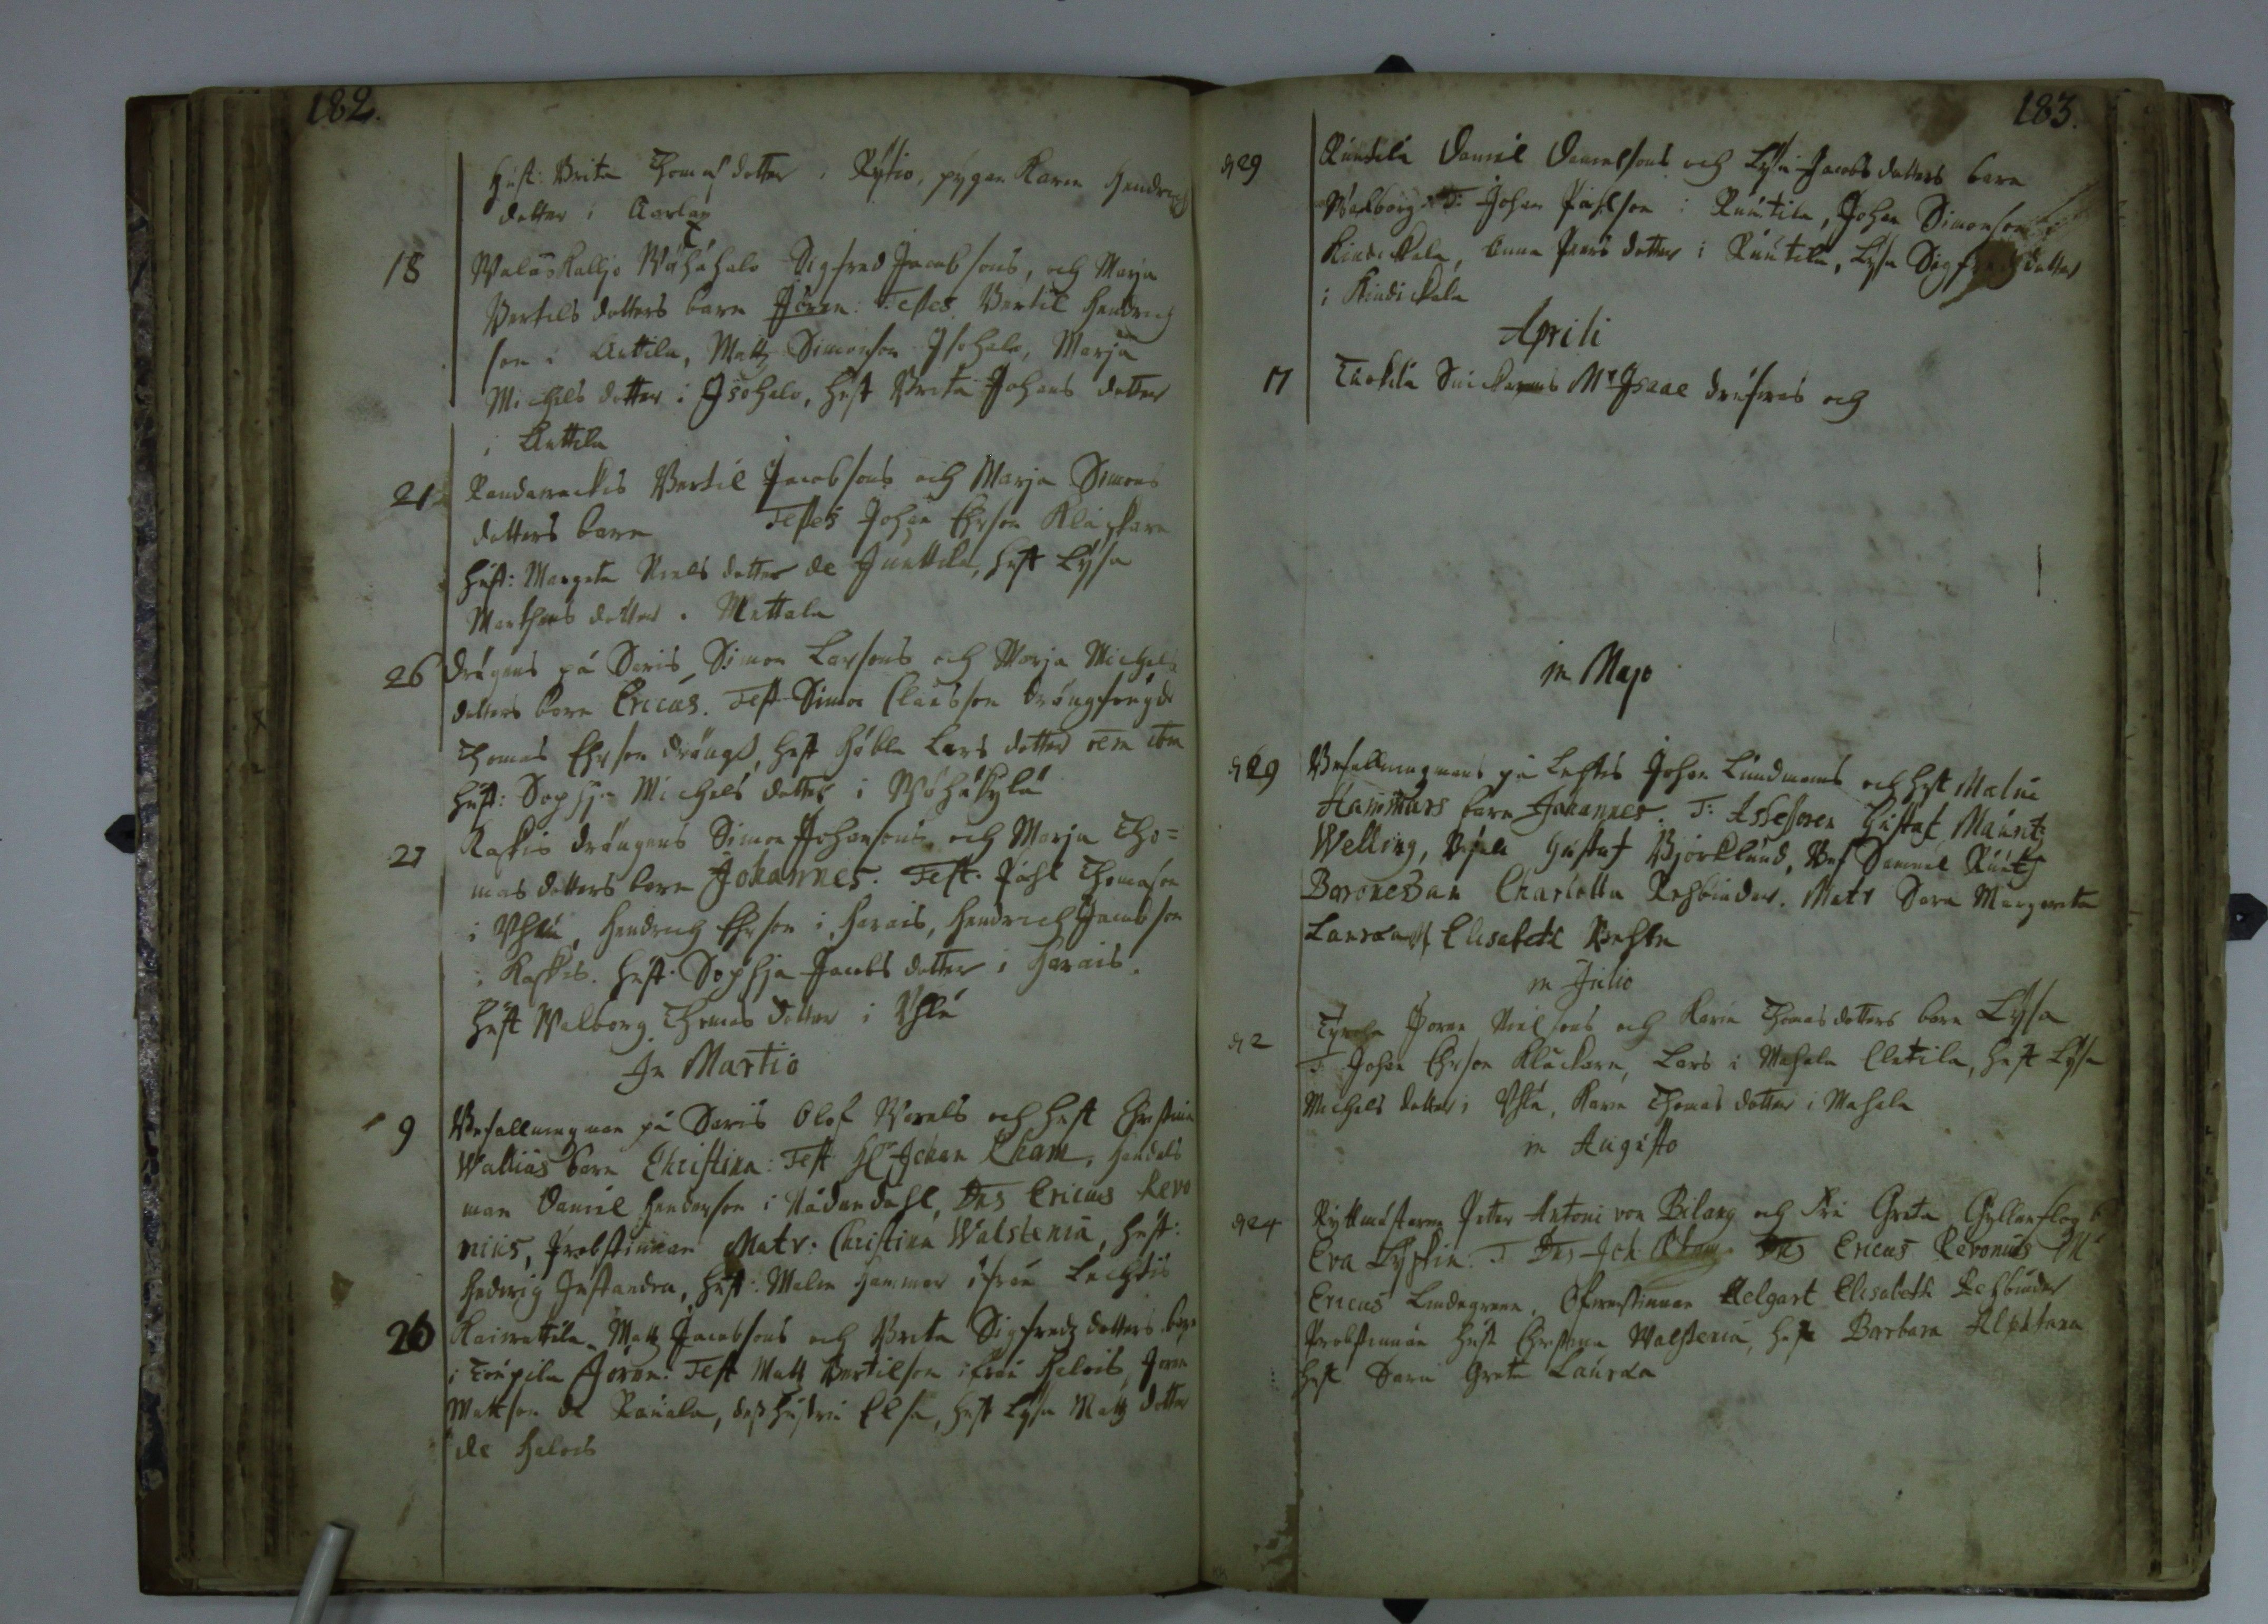 182.
Hust: Brita Thomas dotter i Rytio, pygan Karin Hendrich
dotter i Aarlax
18 Walaskallio Wähähalo Sigfred Jacobsons, och Marja
Bertils dotters barn Jören: Testes. Bertil Hendrich
son i Anttila, Matz Simonson Isohalo, Marja
Michels dotter i Isohalo, hust Brita Johans dotter
i Anttila
21 Bertil Jacobsons och Marja Simons
dotters barn Testes Johan Ehrson Klåckare
hust: Margeta Niels dotter de Juottila, hust Lysa
Marthens dotter i Mattala
26 drägens på Saris Simon Larsons och Marja Michels
dotters barn Ericus. Test Simon Claësson
Thomas Ehrson drängh, hust Lars dotter
hust: Sophja Michels dotter i Wähäkylä
27 Raskis drängens Simon Johansons och Marja Tho=
mas dotters barn Johannes. Test. Påhl Thomason
i Uhlu, Hendrich Ehrson i Harais, Hendrich Jacobson
i Raskis. hust. Sophja Jacobs dotter i Harais.
hust Walborg Thomas dotter i Uhlu
In Martio
9 Befallningman på Saris Olof och hust Christina
Wallius barn Christina: Test Hr Johan Kham, handels
man Daniel Henderson i Nådendahl, Dns Ericus Revo
nius, Probstinnan Matr: Christina Walstenia, hust:
Hedwig Justandra, hust: Malin Hammar ifrån Lechtis
26 Kairattila Matz Jacobsons och Brita Sigfredz dotters barn
i Toupila Jören. Test Matz Bertilson ifrån Halois, Jören
Mattson de Raiiala, dess hustru Elsa, hust Lysa Matz dotter
de Halois
183.
29 Ruutila Daniel Danielsons och Lysa Jacobs dotters barn
Walborg T: Johan Påhlson i Ruutila, Johan Simonson i
Kindickala, Anna Peers dotter i Ruutila, Lysa Sigfredz dotter
i Kindickala
Aprili
17 Tackila Snickarens Mr Isaac och
in Majo
29 Befallningmans på Lechtis Johan Lundmans och hust Malin
Hammars barn Johannes. T: Assessoren Gustaf Mauritz
Welling, Gustaf Björklund, Samuel
Baronessan Charlotta Rehbinder. Matr Sara Margareta
Lauraea Elisabeth
in Julio
2 Jören Nielsons och Karin Thomas dotters barn Lysa
T Johan Ehrson Klåckare, Lars i Mahala, hust Lysa
Michels dotter i Uhlu, Karin Thomas dotter i Mahala
in Augusto
24 Ryttmästaren Peter Antoni von Bilang och Fru Greta Gyllenflog b
Eva T Dns Joh Kham Dns Ericus Revonius Mr
Ericus Lindegreen, Öfwerstinnan Helgart Elisabeth Rehbinder
Probstinnan hust Christina Walstenia, hust Barbara Alpstana
hust Sara Greta Lauraea